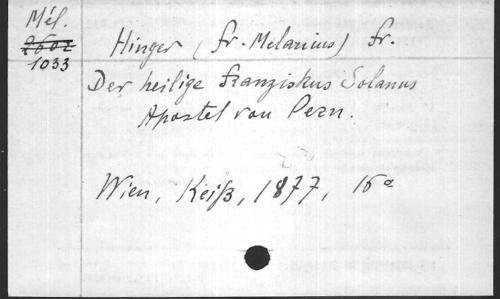 Mél.
2602
1033
Hinger (fr. Melarius) fr.
Der heilige Franziskus Solanus
Apostel von Peru.
Wien, Keiß, 1877, 16°